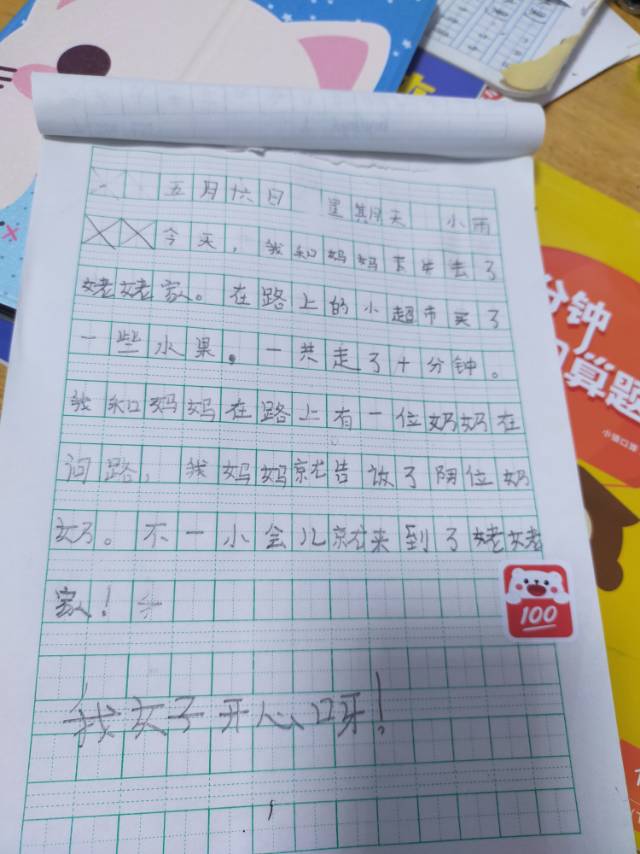 五月六日 星期天 小雨
今天，我和妈妈下午去了
姥姥家。在路上的小超市买了
一些水果。一共走了十分钟。
我和妈妈在路上有一位奶奶在
问路，我妈妈就告饭了阴位奶
奶。不一小会儿就来到了姥姥
家！
100
我女子开心呀！
分钟
口算题
小猿口算